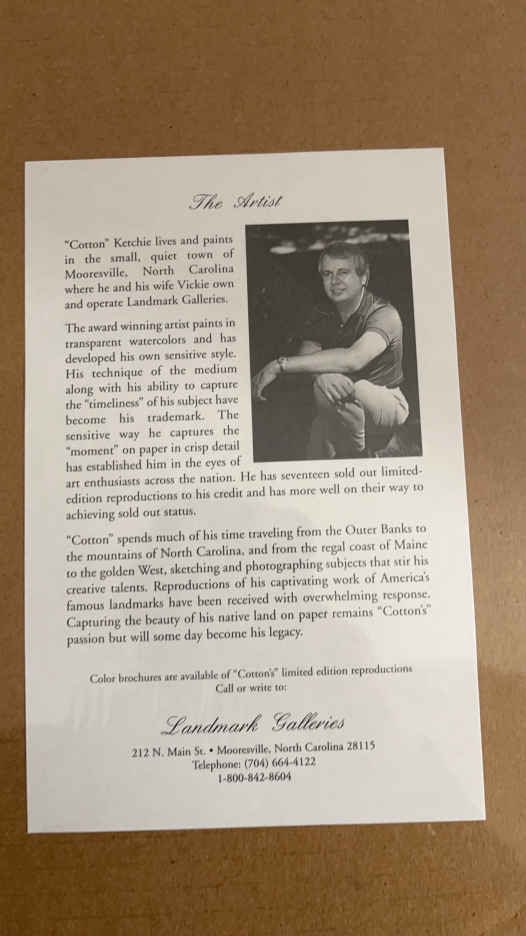 The Artist
“Cotton” Ketchie lives and paints
in the small, quiet town of
Mooresville, North Carolina
where he and his wife Vickie own
and operate Landmark Galleries.
The award winning artist paints in
transparent watercolors and has
developed his own sensitive style.
His technique of the medium
along with his ability to capture
the “timeliness” of his subject have
become his trademark. The
sensitive way he captures the
“moment” on paper in crisp detail
has established him in the eyes of
art enthusiasts across the nation. He has seventeen sold out limited-
edition reproductions to his credit and has more well on their way to
achieving sold out status.
“Cotton” spends much of his time traveling from the Outer Banks to
the mountains of North Carolina, and from the regal coast of Maine
to the golden West, sketching and photographing subjects that stir his
creative talents. Reproductions of his captivating work of America’s
famous landmarks have been received with overwhelming response.
Capturing the beauty of his native land on paper remains “Cotton’s”
passion but will some day become his legacy.
Color brochures are available of “Cotton’s” limited edition reproductions
Call or write to:
Landmark Galleries
212 N. Main St. • Mooresville, North Carolina 28115
Telephone: (704) 664-4122
1-800-842-8604